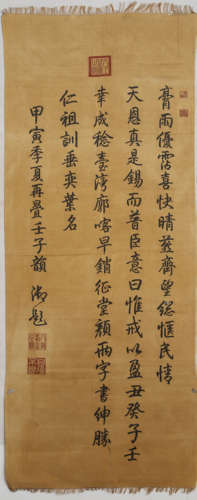 膏雨優霑喜快晴茲齊望總愜民情
天恩真是錫而普臣意曰惟戒以盈丑癸子壬
幸成稔臺灣廓喀早銷征堂顏兩字書紳勝
仁祖訓垂奕葉名
甲寅季夏再疊壬子韻 御題